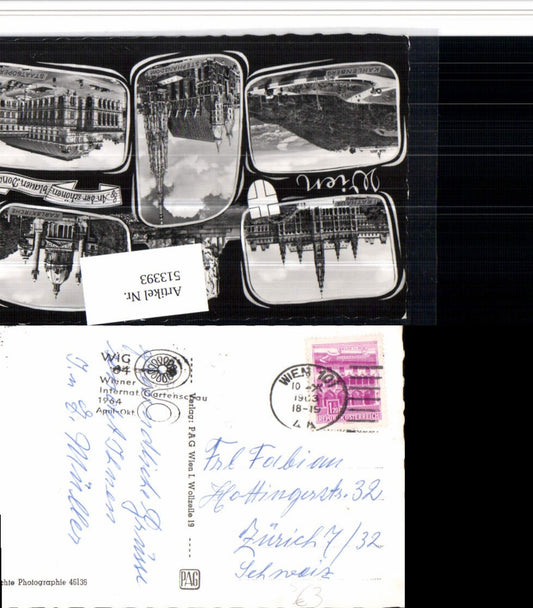 STAATSOPER
STEPHANSDOM
KAHLENBERG
Wien
An der schönen blauen Dona
KARLSKIRCHE
RATHAUS
Artikel Nr.
513393
WIG
64
Wiener
Internat Gartenschau
1964
April-Okt.
WIEN 101
10 -X
1963
18-19
REPUBLIK ÖSTERREICH
Verlag: PAG Wien I, Wollzeile 19
Grüsse
Ihnen
J. u E. Müller
Frl Fabian
Hottingerstr. 32
Zürich 7/32
Schweiz
63
PAG
chte Photographie 46136